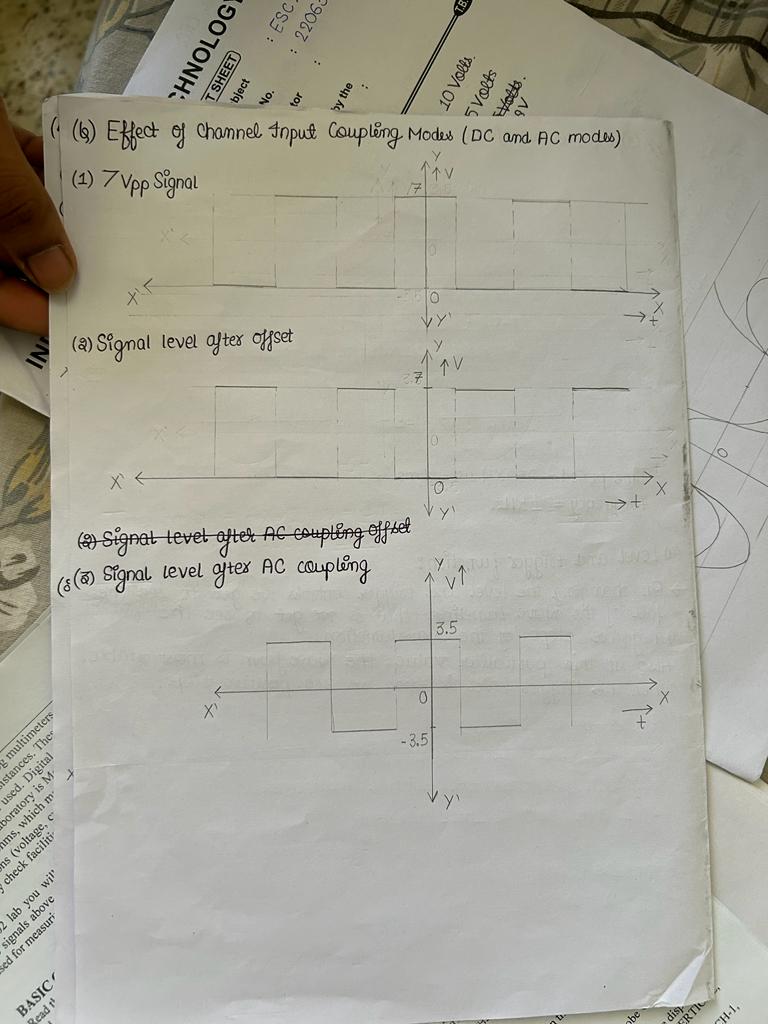 CHNOLOGY
T SHEET
bject
: ESC
No.
: 2206
tor
:
by the
:
10 Volts.
5 Volts
9V
(b) Effect of Channel Input Coupling Modes (DC and AC modes)
(1) 7 Vpp Signal
Y
↑V
7
X'
0
X
Y'
→ t
(2) Signal level after offset
Y
↑V
7
X'
0
X
Y'
→ t
(2) Signal level after AC coupling offset
(3) Signal level after AC coupling
Y
V↑
3.5
0
X'
X
→ t
-3.5
Y'
O
g multimeters
stances. Thes
used. Digital
boratory is M
ms, which m
ns (voltage, c
y check faciliti
2 lab you wil
signals above
sed for measuri
BASIC
Read th
CH-1,